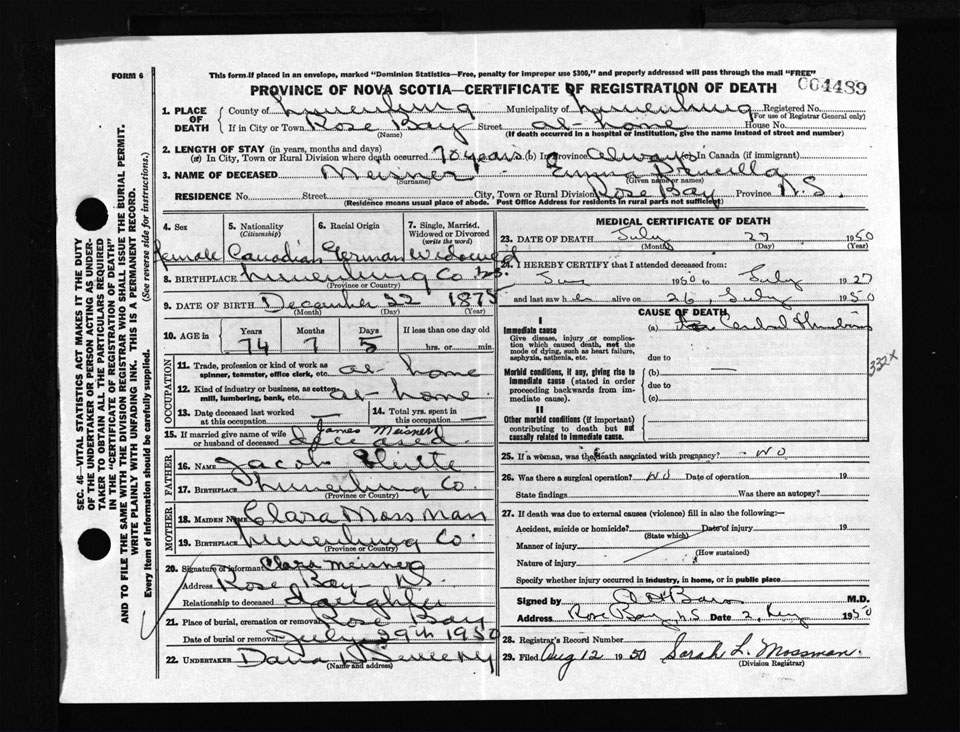 FORM 6
This form if placed in an envelope, marked "Dominion Statistics—Free, penalty for improper use $300," and properly addressed will pass through the mail "FREE"
PROVINCE OF NOVA SCOTIA—CERTIFICATE OF REGISTRATION OF DEATH
004489
1. PLACE OF DEATH
County of Lunenburg Municipality of Lunenburg Registered No.
(For use of Registrar General only)
If in City or Town Rose Bay Street at home House No.
(Name) (If death occurred in a hospital or institution, give the name instead of street and number)
2. LENGTH OF STAY (in years, months and days)
(a) In City, Town or Rural Division where death occurred years (b) In Province always (c) In Canada (if immigrant)
3. NAME OF DECEASED Meisner Emma
(Surname) (Given name or names)
RESIDENCE No. Street City, Town or Rural Division Rose Bay Province N.S.
(Residence means usual place of abode. Post Office Address for residents in rural parts not sufficient)
4. Sex
female
5. Nationality
(Citizenship)
Canadian
6. Racial Origin
German
7. Single, Married, Widowed or Divorced
(write the word)
Widowed
8. BIRTHPLACE Lunenburg Co N.S.
(Province or Country)
9. DATE OF BIRTH December 22 1875
(Month) (Day) (Year)
10. AGE in Years Months Days If less than one day old
74 7 5 hrs. or min.
OCCUPATION
11. Trade, profession or kind of work as spinner, teamster, office clerk, etc. at home
12. Kind of industry or business, as cotton mill, lumbering, bank, etc. at home
13. Date deceased last worked at this occupation —
14. Total yrs. spent in this occupation —
15. If married give name of wife or husband of deceased James Meisner
deceased
FATHER
16. NAME Jacob
17. Birthplace Lunenburg Co.
(Province or Country)
MOTHER
18. MAIDEN NAME Clara Mossman
19. BIRTHPLACE Lunenburg Co.
(Province or Country)
20. Signature of informant Clara Meisner
Address Rose Bay N.S.
Relationship to deceased daughter
21. Place of burial, cremation or removal Rose Bay
Date of burial or removal July 29th 1950
22. UNDERTAKER
(Name and address)
MEDICAL CERTIFICATE OF DEATH
23. DATE OF DEATH July 27 1950
(Month) (Day) (Year)
24. I HEREBY CERTIFY that I attended deceased from:
1950 to July 1927
and last saw h er alive on 26, July 1950
CAUSE OF DEATH
I
Immediate cause
Give disease, injury or complication which caused death, not the mode of dying, such as heart failure, asphyxia, asthenia, etc.
(a) Cerebral Thrombosis
due to
Morbid conditions, if any, giving rise to immediate cause (stated in order proceeding backwards from immediate cause).
(b) —
due to
(c)
II
Other morbid conditions (if important) contributing to death but not causally related to immediate cause.
332X
25. If a woman, was the death associated with pregnancy? - NO
26. Was there a surgical operation? NO Date of operation 19
State findings Was there an autopsy?
27. If death was due to external causes (violence) fill in also the following:—
Accident, suicide or homicide? Date of injury 19
(State which)
Manner of injury
(How sustained)
Nature of injury
Specify whether injury occurred in industry, in home, or in public place
Signed by M.D.
Address Rose Bay, N.S. Date 2, 1950
28. Registrar's Record Number
29. Filed Aug 12 1950 Sarah L. Mossman.
(Division Registrar)
SEC. 46—VITAL STATISTICS ACT MAKES IT THE DUTY
OF THE UNDERTAKER OR PERSON ACTING AS UNDER-
TAKER TO OBTAIN ALL THE PARTICULARS REQUIRED
IN THE "CERTIFICATE OF REGISTRATION OF DEATH"
AND TO FILE THE SAME WITH THE DIVISION REGISTRAR WHO SHALL ISSUE THE BURIAL PERMIT.
WRITE PLAINLY WITH UNFADING INK. THIS IS A PERMANENT RECORD.
Every item of information should be carefully supplied. (See reverse side for instructions.)